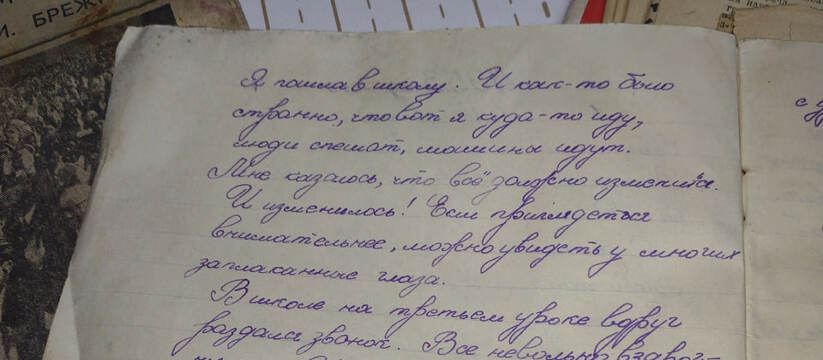 И. БРЕЖ
Я пошла в школу. И как-то было
странно, что вот я куда-то иду,
люди спешат, машины идут.
Мне казалось, что всё должно измениться.
И изменилось! Если приглядеться
внимательнее, можно увидеть у многих
заплаканные глаза.
В школе на третьем уроке вдруг
раздался звонок. Все невольно вздрог-